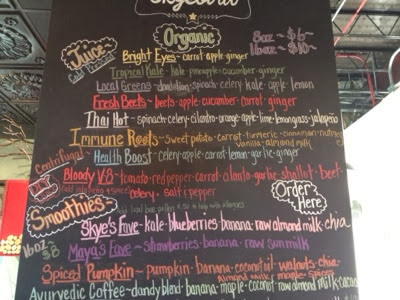 Organic
8oz ~ $6~
16oz ~ $10~
Juice~
Cold Pressed
Bright Eyes~ carrot·apple·ginger
Tropical Kale~ kale·pineapple·cucumber·ginger
Local Greens~ dandelion·spinach·celery·kale·apple·lemon
Fresh Beets~ beets·apple·cucumber·carrot·ginger
Thai Hot~ spinach·celery·cilantro·orange·apple·lime·lemongrass·jalapeño
Immune Roots~ sweet potato·carrot·turmeric·cinnamon·nutmeg
vanilla·almond milk
Centrifugal
Health Boost~ celery·apple·carrot·lemon·garlic·ginger
Bloody V-8~ tomato·red pepper·carrot·cilantro·garlic·shallot·beet·
celery·salt & pepper
Order
Here!
Smoothies~
local bee pollen to help with allergies
16oz
$8
Skye's Fave~ kale·blueberries·banana·raw almond milk·chia
Maya's Fave~ strawberries·banana·raw almond milk
Spiced Pumpkin~ pumpkin·banana·coconut oil·walnuts·chia·
almond milk·maple·spices
Ayurvedic Coffee~ dandy blend·banana·maple·coconut·raw almond milk·cacao